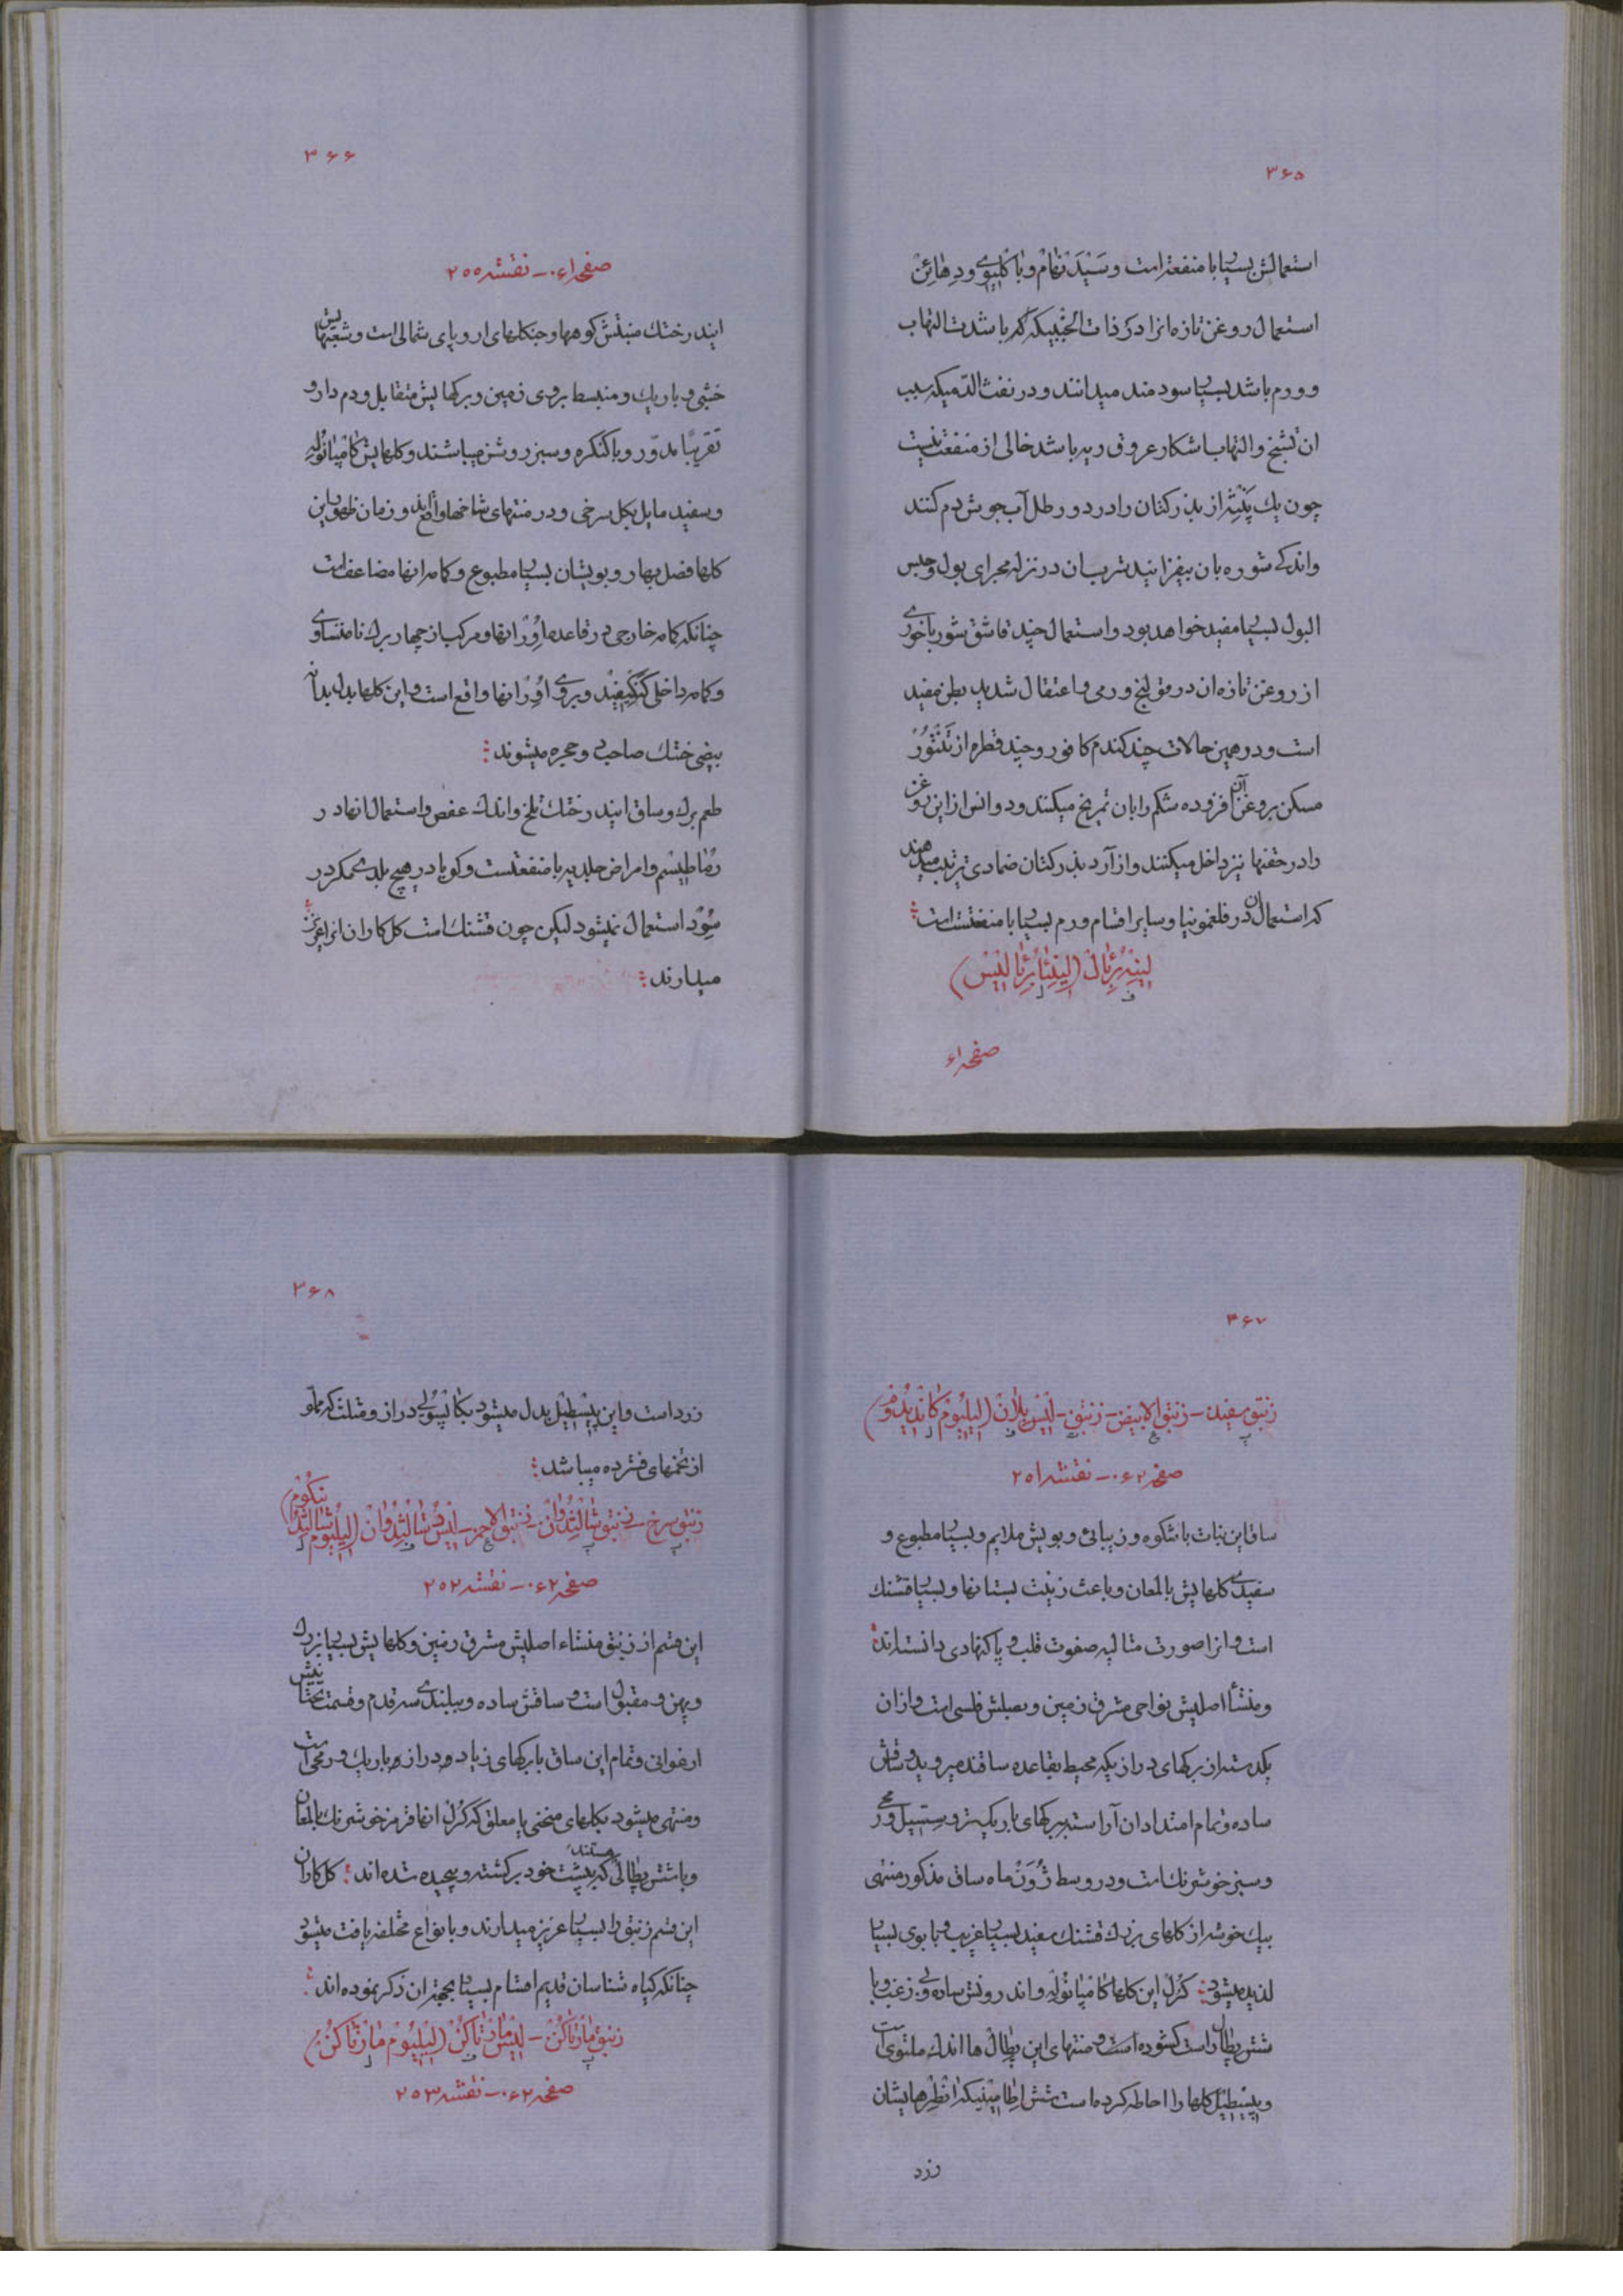 ۳۶۵
استعمالش بسیار با منفعة است و سَیْدَنْهَامْ و
استعمال روغن تازه انرا در ذات الجنبیکه که با شدت التهاب
و ورم باشد بسیار سودمند میدانند و در نفث الدّمیکه سبب
ان تشنج و التهاب باشکار عروق ریه باشد خالی از منفعت نیست
چون یك از بذر کتان را در دو رطل آب جوش دم کنند
و اندکے شوره بان بیفزایند شرب ان در نزله مجرای بول و حبس
البول بسیار مفید خواهد بود و استعمال چند قاشق شوربا خورے
از روغن تازه ان در قولنج ورمی و اعتقال شدید بطن مفید
است و در همین حالات چند کندم کافور و چند قطره از تَنْتُورْ
مسکن بروغن آن افزوده شکم را بان تمریخ میکنند ود وانس از این روغن
را در حقنها نیز داخل میکنند و از آرد بذر کتان ضمادی ترتیب میدهند
که استعمال ان در فلغمونیا و سایر اقسام ورم بسیار با منفعتست است
لینه برئال (لینئا برئالیس)
صفحه ۶۱
۳۶۶
صفحه ۰۶۱ – نقشه ۲۵۰
ایندرختك منبتش کوهها و جنکلهای اروپای شمالی است و شعبهایش
خشبی و باریك و منبسط بروی زمین و برکهایش متقابل و دم دار و
تقریبًا مدوّر و با کنکره و سبز روشن میباشند و کلهایش کامپانوله
و سفید مایل بکل سرخی و در منتهای شاخها واقع اند و زمان ظهور این
کلها فصل بهار و بویشان بسیار مطبوع و کاسه انها مضاعف است
چنانکه کاسه خارجی در قاعده اُوِرْ انها و مرکب از چهار برك نا متساوی
و کاسه داخلی و بروی اُوِرْ انها واقع است و این کلها بدل بدانه
بیضی خشك صاحب و حجره میشوند
طعم برك و ساق ایندرختك تلخ و اندك عفص و استعمال انها در
رُماطیسم و امراض جلدیه با منفعتست و کویا در هیچ بلدے مکر در
سُوِدْ استعمال نمیشود لیکن چون قشنك است کل کاران انرا عزیز
میدارند
۳۶۷
زنبق سفید – زنبق الابیض – زنبق – لیس بلان (لیلیوم کاندیدوم)
صفحه ۰۶۲ – نقشه ۲۵۱
ساق این نبات با شکوه و زیبائی و بویش ملایم و بسیار مطبوع و
سفیدے کلهایش با لمعان و باعث زینت بستانها و بسیار قشنك
است و انرا صورت مثالیه صفوت قلب و پاکنهادی دانسته اند
و منشأ اصلیش نواحی مشرق زمین و بصلش فلسی است و از ان
یکدسته از برکهای دراز یکه محیط بقاعده ساقند میروید و ساقش
ساده و تمام امتداد ان آراسته ببرکهای باریك تر و سِسّیل و رمحی
و سبز خوش رنك است و در وسط ژُوَنْ ماه ساق مذکور منتهی
بیك خوشه از کلهای بزرك قشنك سفید بسیار غریب و با بوی بسیار
لذیذ میشود کُرُل این کلها کامپانُولِه و اندرونش ساده و بی زغب و با
شش پطال راست کشوده است و منتهای این پطال ها اندك ملتوی است
و پیسطیل کلها را احاطه کرده است شش اطامینیکه انطر هایشان
زرد
۳۶۸
زرد است و این پیسطیل بدل میشود بکاپسولی دراز و مثلث که مملوّ
از تخمهای فشرده میباشد
زنبق سرخ – زنبق شالسِدُوان – زنبق الاحمر – لیس دُ شالسِدُوان (لیلیوم شالسدُنیکوم)
صفحه ۰۶۲ – نقشه ۲۵۲
این قسم از زنبق منشاء اصلیش مشرق زمین و کلهایش بسیار بزرك
و پهن و مقبول است و ساقش ساده و ببلندے سه قدم و قسمت تحتانیش
ارغوانی و تمام این ساق با برکهای زیاد و دراز و باریك و رمحی است
و منتهی میشود بکلهای منحنی یا معلق که کُرُل انها قرمز خوش رنك با لمعان
و با شش پطالی هستند که بپشت خود برکشته و پیچیده شده اند کل کاران
این قسم زنبق را بسیار عزیز میدارند و با نواع مختلفه یافت میشود
چنانکه کیاه شناسان قدیم اقسام بسیار بجهة ان ذکر نموده اند
زنبق مارتاکُن – لیس مارتاکُن (لیلیوم مارتاکُن)
صفحه ۰۶۲ – نقشه ۲۵۳